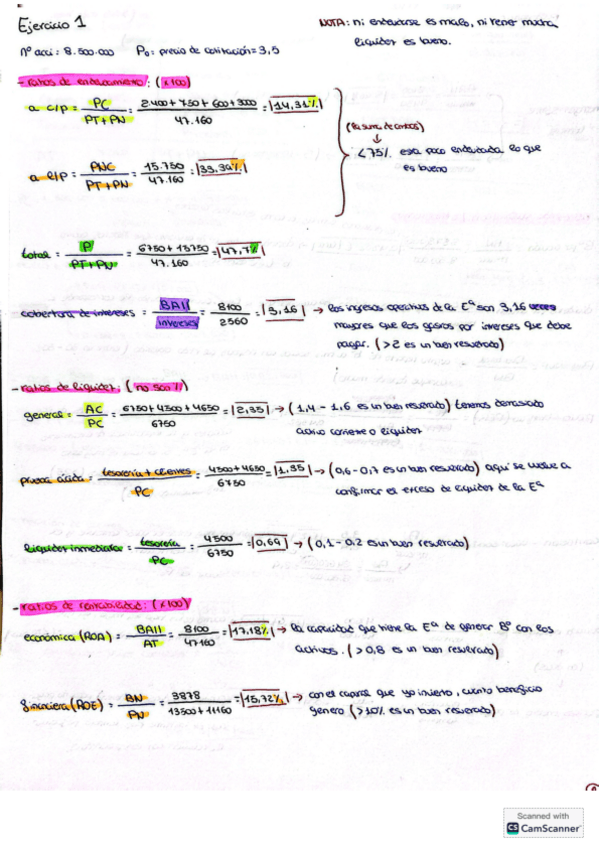 Ejercicio 1
NOTA: ni endeudarse es malo, ni tener mucha
liquidez es bueno.
nº acci: 8.500.000 P₀: precio de cotización = 3,5
- ratios de endeudamiento: (x100)
a c/p = PC / PT+PN = 2400+750+600+3000 / 47.160 = |14,31%|
(la suma de ambos)
↓
<75% esta poco endeudada lo que
es bueno
a l/p = PNC / PT+PN = 15.750 / 47.160 = |33,39%|
total = P / PT+PN = 6750+15750 / 47.160 = |47,7%|
cobertura de intereses = BAII / intereses = 8100 / 2560 = |3,16| → los ingresos operativos de la Eª son 3,16 veces
mayores que los gastos por intereses que debe
pagar. (>2 es un buen resultado)
- ratios de liquidez: (no son %)
general = AC / PC = 6750+4500+4650 / 6750 = |2,35| → (1,4 - 1,6 es un buen resultado) tenemos demasiado
activo corriente o liquidez
prueba ácida = tesorería + clientes / PC = 4500+4650 / 6750 = |1,35| → (0,6-0,7 es un buen resultado) aquí se vuelve a
confirmar el exceso de liquidez de la Eª
liquidez inmediata = tesorería / PC = 4500 / 6750 = |0,69| → (0,1 - 0,2 es un buen resultado)
- ratios de rentabilidad: (x100)
económica (ROA) = BAII / AT = 8100 / 47160 = |17,18%| → la capacidad que tiene la Eª de generar Bº con los
activos. (>0,8 es un buen resultado)
financiera (ROE) = BN / PN = 3878 / 13500+11160 = |15,72%| → con el capital que yo invierto, cuanto beneficio
genero (>10% es un buen resultado)
Scanned with
CS CamScanner